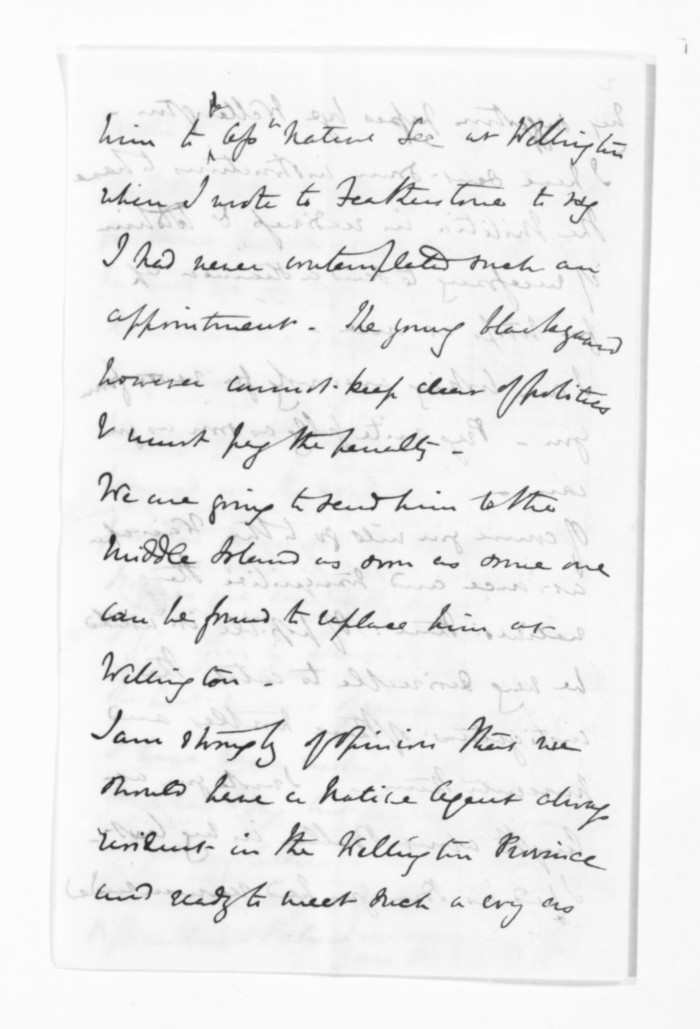 him to be Ass^t Native Sec at Wellington
when I wrote to Featherstone to say
I had never contemplated such an
appointment - The young blackguard
however cannot keep clear of politics
& must pay the penalty -
We are going to send him to the
Middle Island as soon as some one
can be found to replace him at
Wellington -
I am strongly of opinion that we
should have a Native Agent always
resident in the Wellington Province
and ready to meet such a cry as